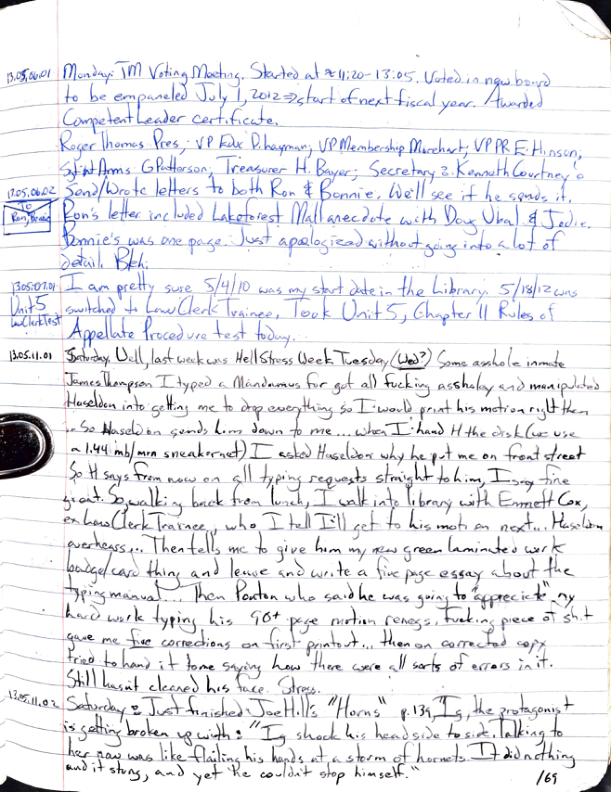 13.05.06.01 Monday: TM Voting Meeting. Started at ≈11:20-13:05. Voted in new board
to be empaneled July 1, 2012 ⇒ start of next fiscal year. Awarded
Competent Leader certificate.
Roger Thomas Pres, VP Edu D. hayman, VP Membership Marchart, VP PR E. Hinson,
Sgt at Arms G Patterson, Treasurer H. Bayer; Secretary Kenneth Courtney
13.05.06.02 Send/Wrote letters to both Ron & Bonnie. We'll see if he sends it.
To Ron, Bonnie Ron's letter included Lakeforest Mall anecdote with Doug & Jodie.
Bonnie's was one page. Just apologized without going into a lot of
detail. Bleh.
13.05.07.01 I am pretty sure 5/4/10 was my start date in the Library. 5/18/12 was
Unit 5 switched to Law Clerk Trainee. Took Unit 5, Chapter 11 Rules of
Law Clerk Test Appellate Procedure test today.
13.05.11.01 Saturday. Well, last week was Hell Stress Week Tuesday (Wed?) Some asshole inmate
James Thompson I typed a Mandamus for got all fucking assholey and manipulated
Haseldon into getting me to drop everything so I would print his motion right then
... So Haseldon sends him down to me... when I hand H the disk (we use
a 1.44 mb/min sneakernet) I asked Haseldon why he put me on front street
So H says from now on all typing requests straight to him, I say fine
great. So walking back from lunch, I walk into library with Emmett Cox,
ex Law Clerk Trainee, who I tell I'll get to his motion next... Haseldon
overhears... Then tells me to give him my new green laminated work
badge/card thing and leave and write a five page essay about the
typing manual. Then Ponton who said he was going to "apprecick" my
hard work typing his 90+ page motion reneges. Fucking piece of shit
gave me five corrections on first printout... then on corrected copy
tried to hand it to me saying how there were all sorts of errors in it.
Still hasn't cleaned his face. Stress.
13.05.11.02 Saturday: Just finished Joe Hill's "Horns" p. 139 "Ig, the protagonist
is getting broken up with: "Ig shook his head side to side. Talking to
her now was like flailing his hands at a storm of hornets. It did nothing
and it stung, and yet he couldn't stop himself."
/69